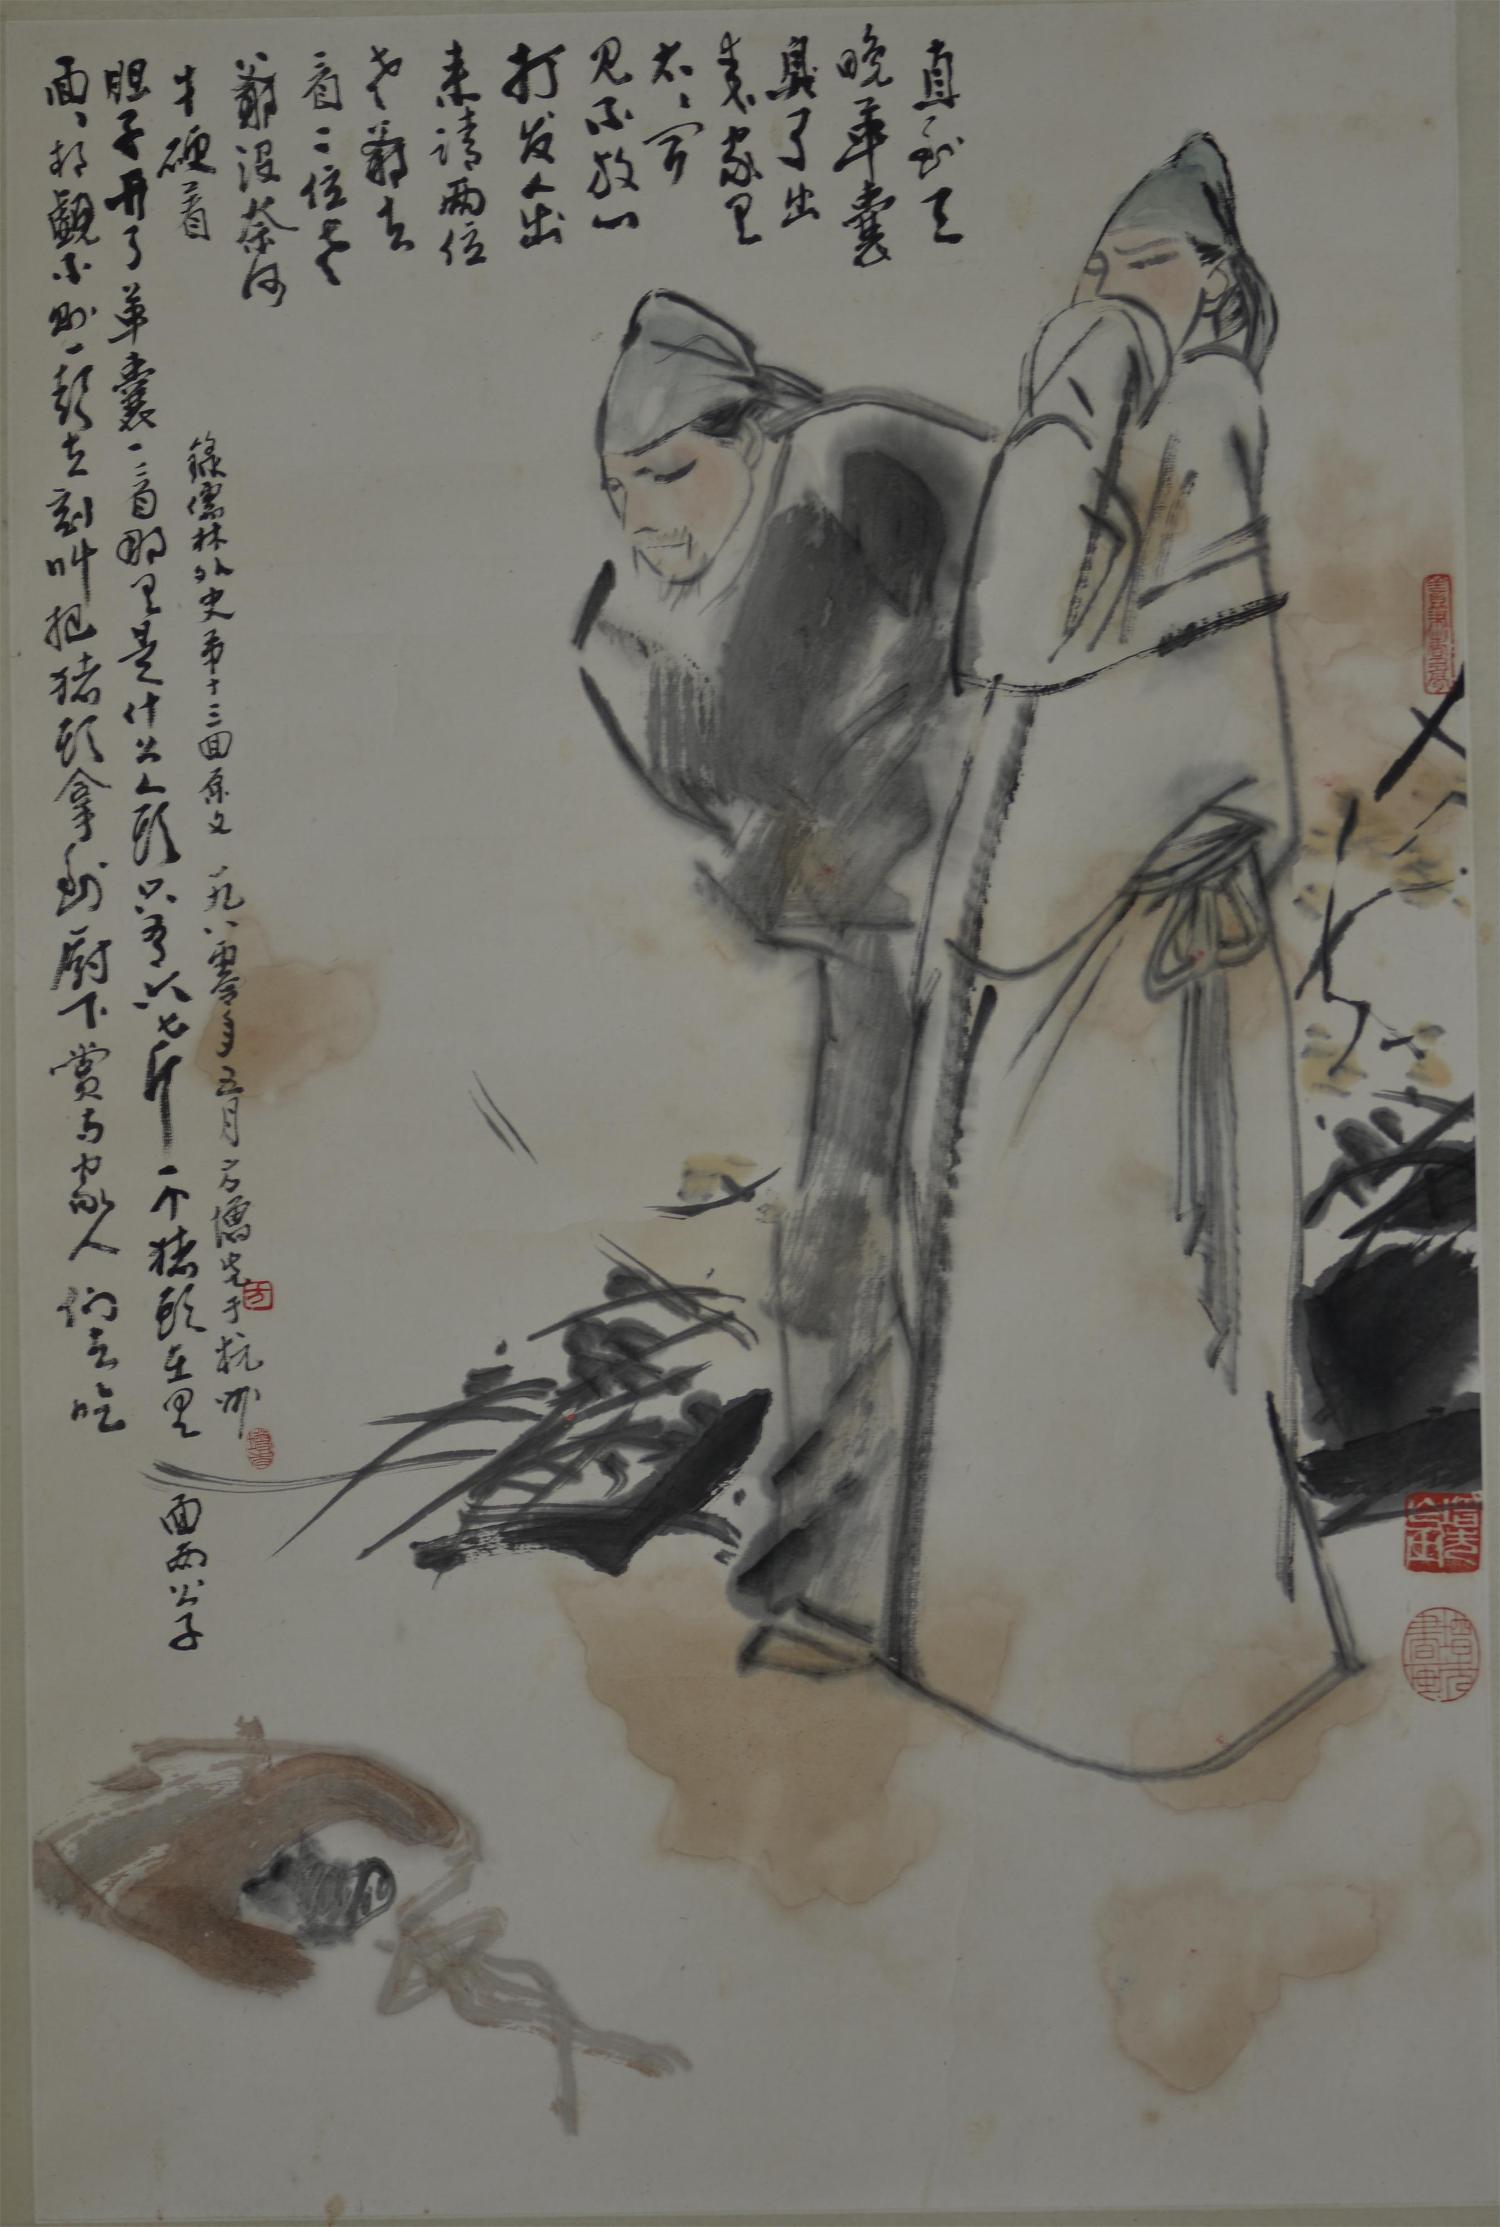 直到天
晚革囊
臭了出
来家里
太々闻
见不放心
打发人出
来请两位
老爷去
看二位老
爷没奈何
才硬着
胆子开了革囊一看那里是什么人头只有六七斤一个猪头在里面两公子
面々相觑不则一声立刻叫把猪头拿到厨下赏与家人们去吃
錄儒林外史第十三回原文 一九八零年五月方增先于杭州
方